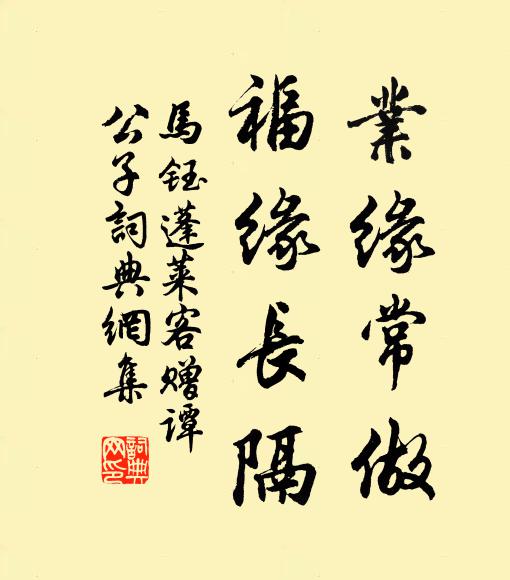 業緣常做
福緣長隔
馬鈺蓬萊客赠譚
公子詞典網集
詞典
网印